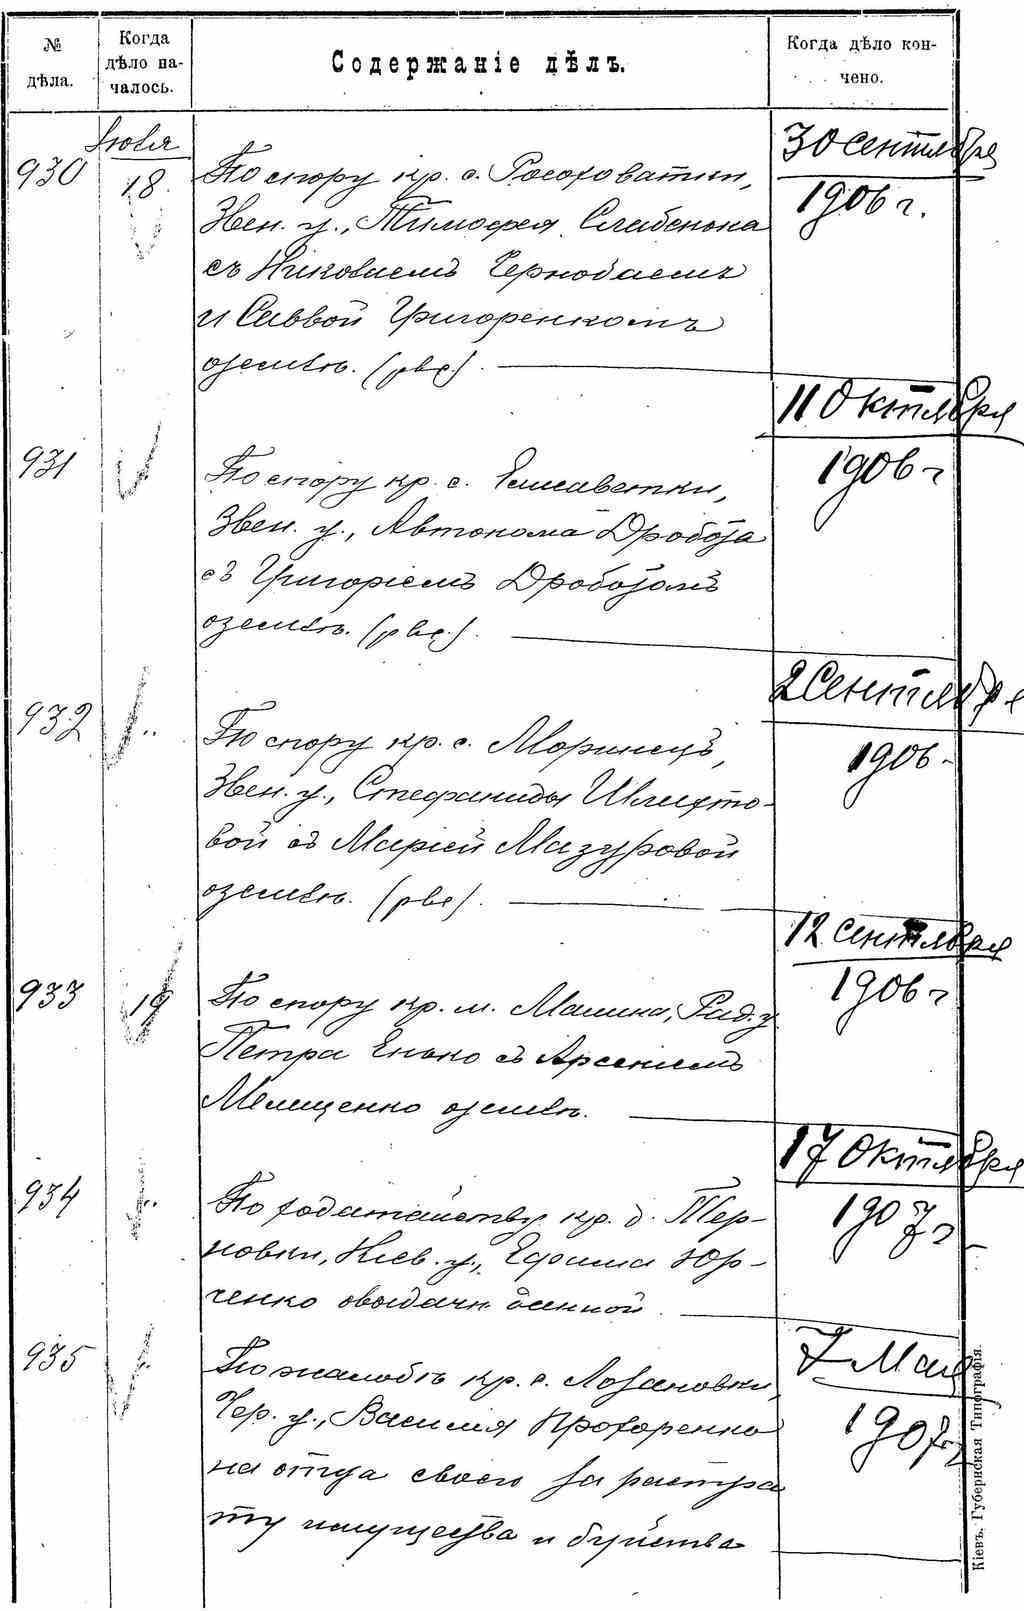 № дѣла.
Когда дѣло началось.
Содержаніе дѣлъ.
Когда дѣло кончено.
Іюля
930
18
По спору кр. с. Росоховатки,
Звен. у., Тимофея Слабенока
съ Николаемъ Чернобаемъ
и Саввой Григоренкомъ
о землѣ.
30 Сентября
1906 г.
931
По спору кр. с. Елисаветки,
Звен. у., Автонома Дробота
съ Григоріемъ Дроботомъ
о землѣ.
11 Октября
1906 г
932
По спору кр. с. Моринецъ,
Звен. у., Стефаниды Шлихто-
вой съ Маріей Мазуровой
о землѣ.
2 Сентября
1906
933
19
По спору кр. м. Малина, Рад. у
Петра Енько съ Арсеніемъ
Мелищенко о землѣ.
12 Сентября
1906 г
934
По ходатайству кр. д. Тер-
новки, Кіев. у., Ефима Юр-
ченко о выдачѣ данной
17 Октября
1907 г
935
По жалобѣ кр. с. Лозановки,
Чер. у., Василія Прохоренко
на отца своего за растра
ту имущества и буйства
7 Мая
1907 г
Кіевъ. Губернская Типографія.